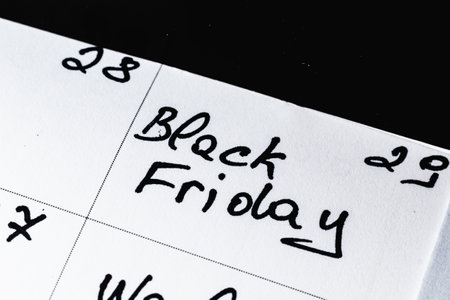 28
Black
Friday
29